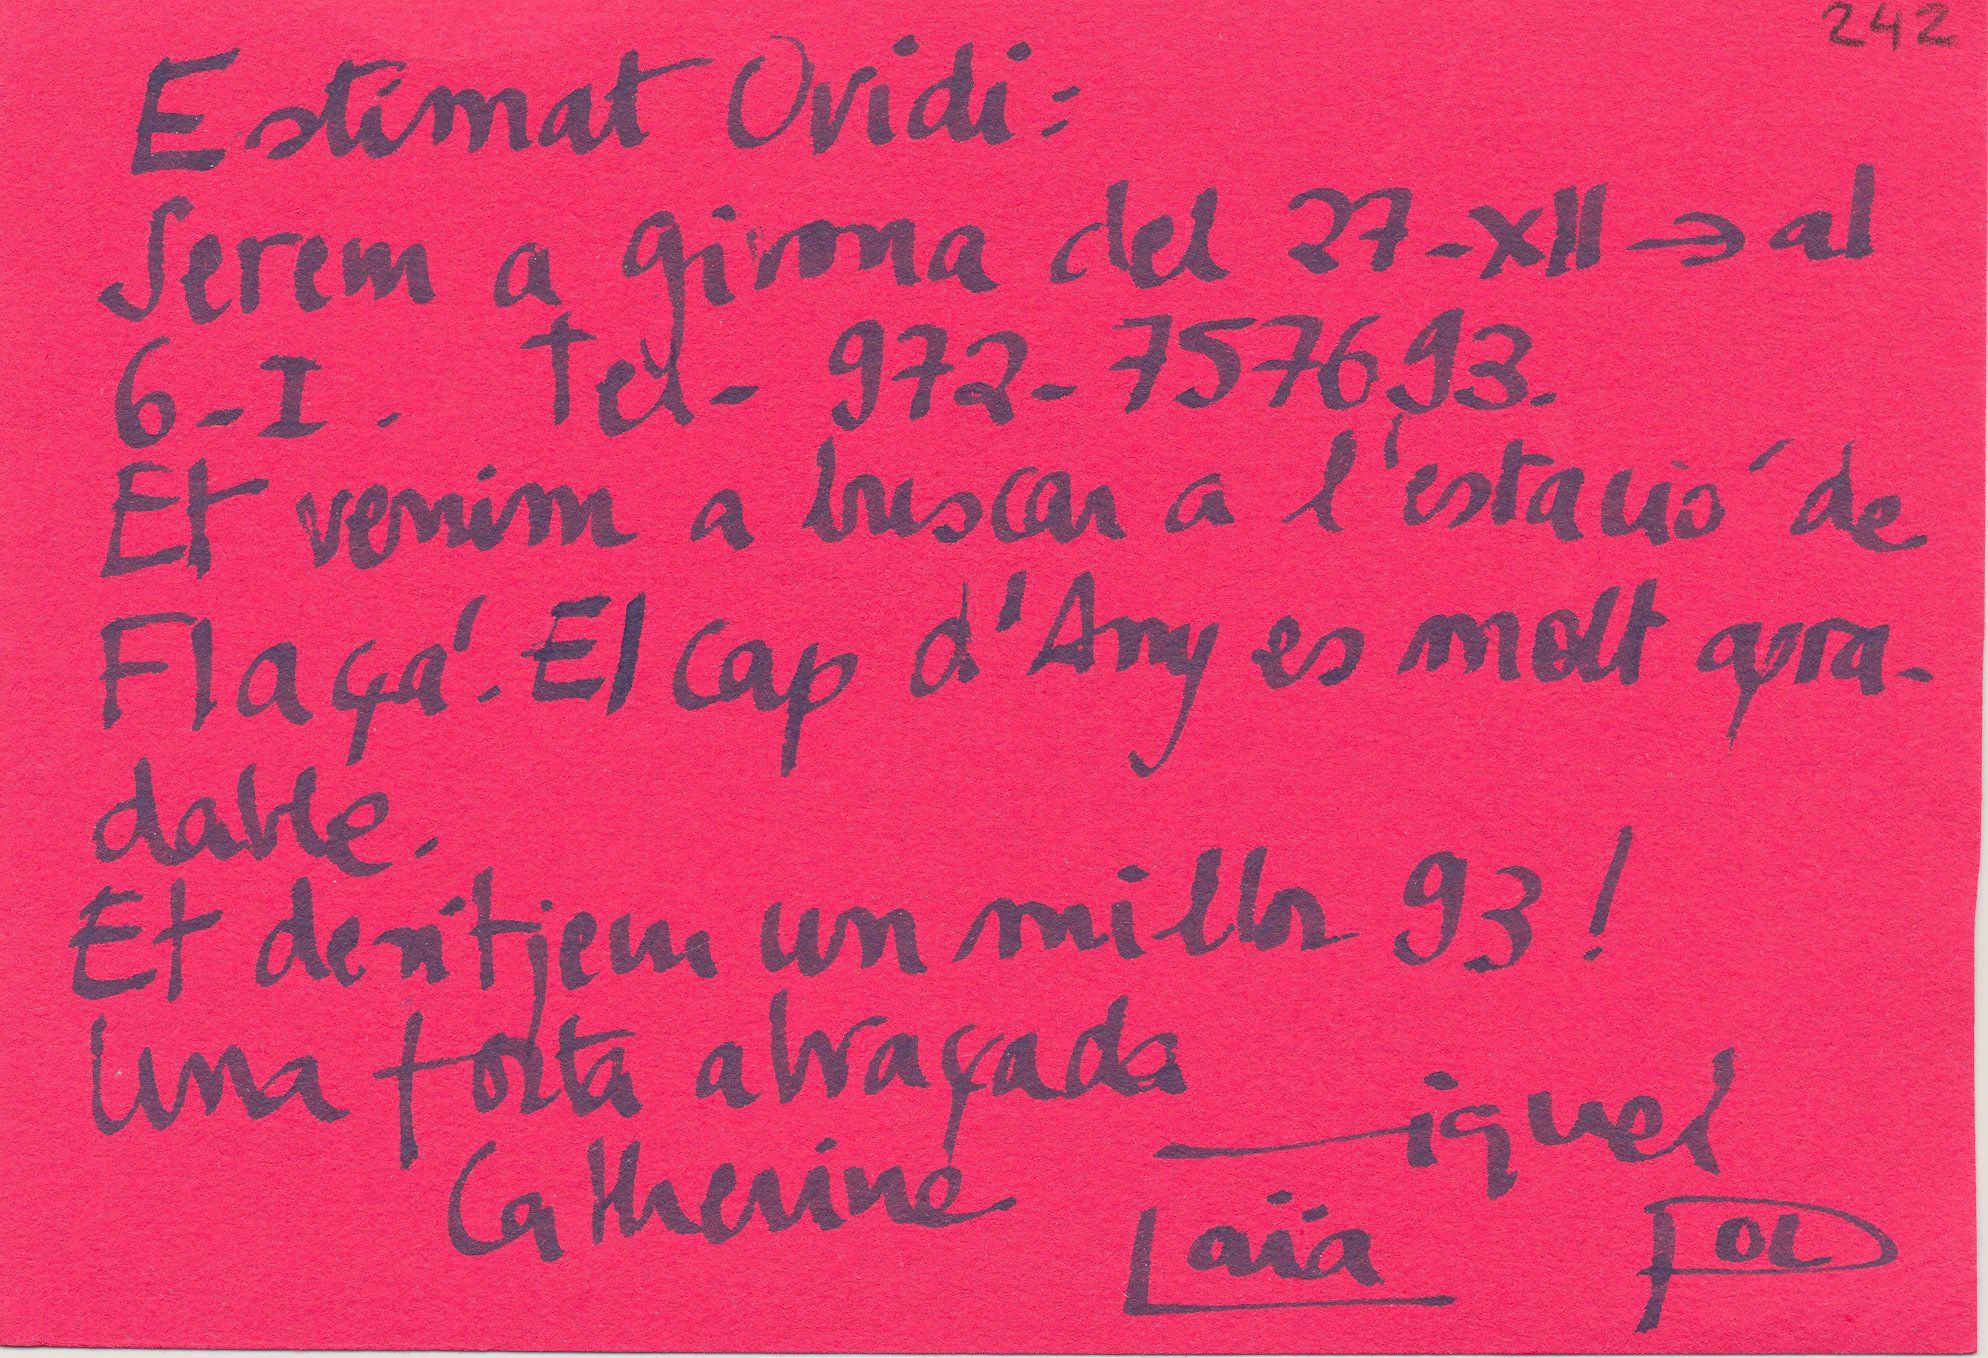 242
Estimat Ovidi:
Serem a girona del 27-XII → al
6-I. Tel- 972-757693.
Et venim a buscar a l'estació de
Flaçá. El cap d'Any es molt agra-
dable.
Et desitjem un millor 93!
Una forta abraçada
Catherine Miquel
Laïa Pol